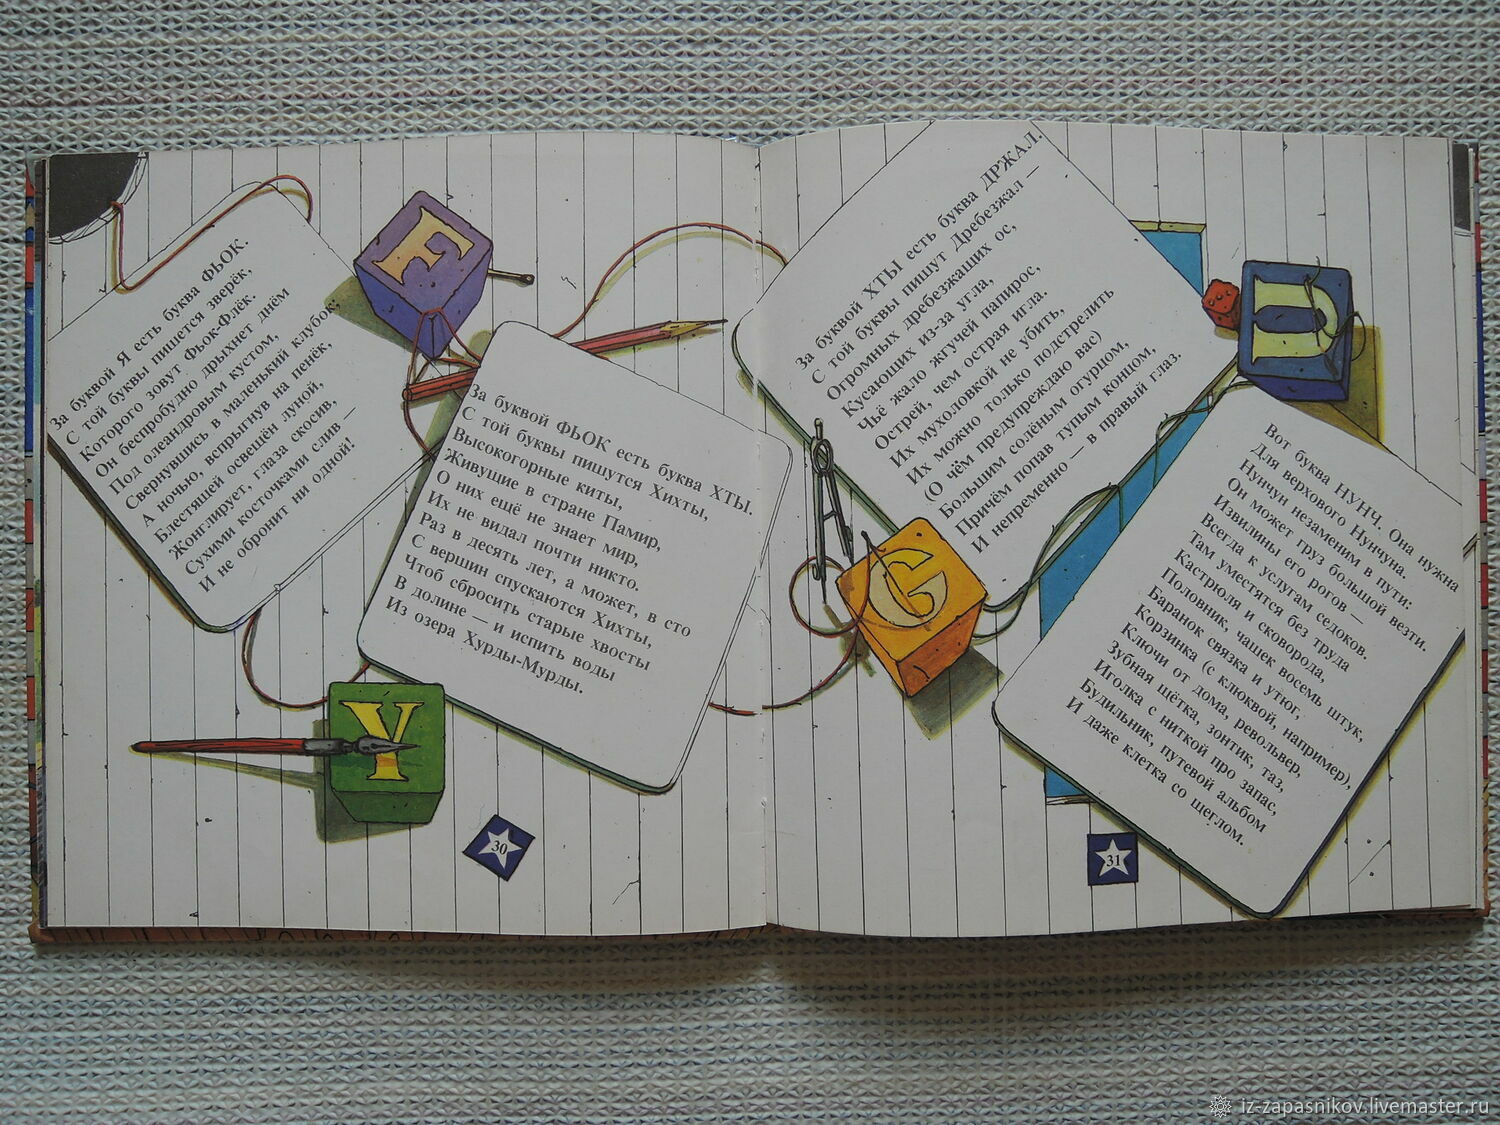 За буквой Я есть буква ФЬОК.
С той буквы пишется зверёк,
Которого зовут Фьок-Флёк.
Он беспробудно дрыхнет днём
Под олеандровым кустом,
Свернувшись в маленький клубок;
А ночью, вспрыгнув на пенёк,
Блестящей освещён луной,
Жонглирует, глаза скосив,
Сухими косточками слив —
И не обронит ни одной!
F
За буквой ФЬОК есть буква ХТЫ.
С той буквы пишутся Хихты,
Высокогорные киты,
Живущие в стране Памир,
О них ещё не знает мир,
Их не видал почти никто.
Раз в десять лет, а может, в сто
С вершин спускаются Хихты,
Чтоб сбросить старые хвосты
В долине — и испить воды
Из озера Хурды-Мурды.
Y
30
За буквой ХТЫ есть буква ДРЖАЛ.
С той буквы пишут Дребезжал —
Огромных дребезжащих ос,
Кусающих из-за угла,
Чьё жало жгучей папирос,
Острей, чем острая игла.
Их мухоловкой не убить,
Их можно только подстрелить
(О чём предупреждаю вас)
Большим солёным огурцом,
Причём попав тупым концом,
И непременно — в правый глаз.
U
G
Вот буква НУНЧ. Она нужна
Для верхового Нунчуна.
Нунчун незаменим в пути:
Он может груз большой везти.
Извилины его рогов —
Всегда к услугам седоков.
Там уместятся без труда
Кастрюля и сковорода,
Половник, чашек восемь штук,
Баранок связка и утюг,
Корзинка (с клюквой, например),
Ключи от дома, револьвер,
Зубная щётка, зонтик, таз,
Иголка с ниткой про запас,
Будильник, путевой альбом
И даже клетка со щеглом.
31
iz-zapasnikov.livemaster.ru